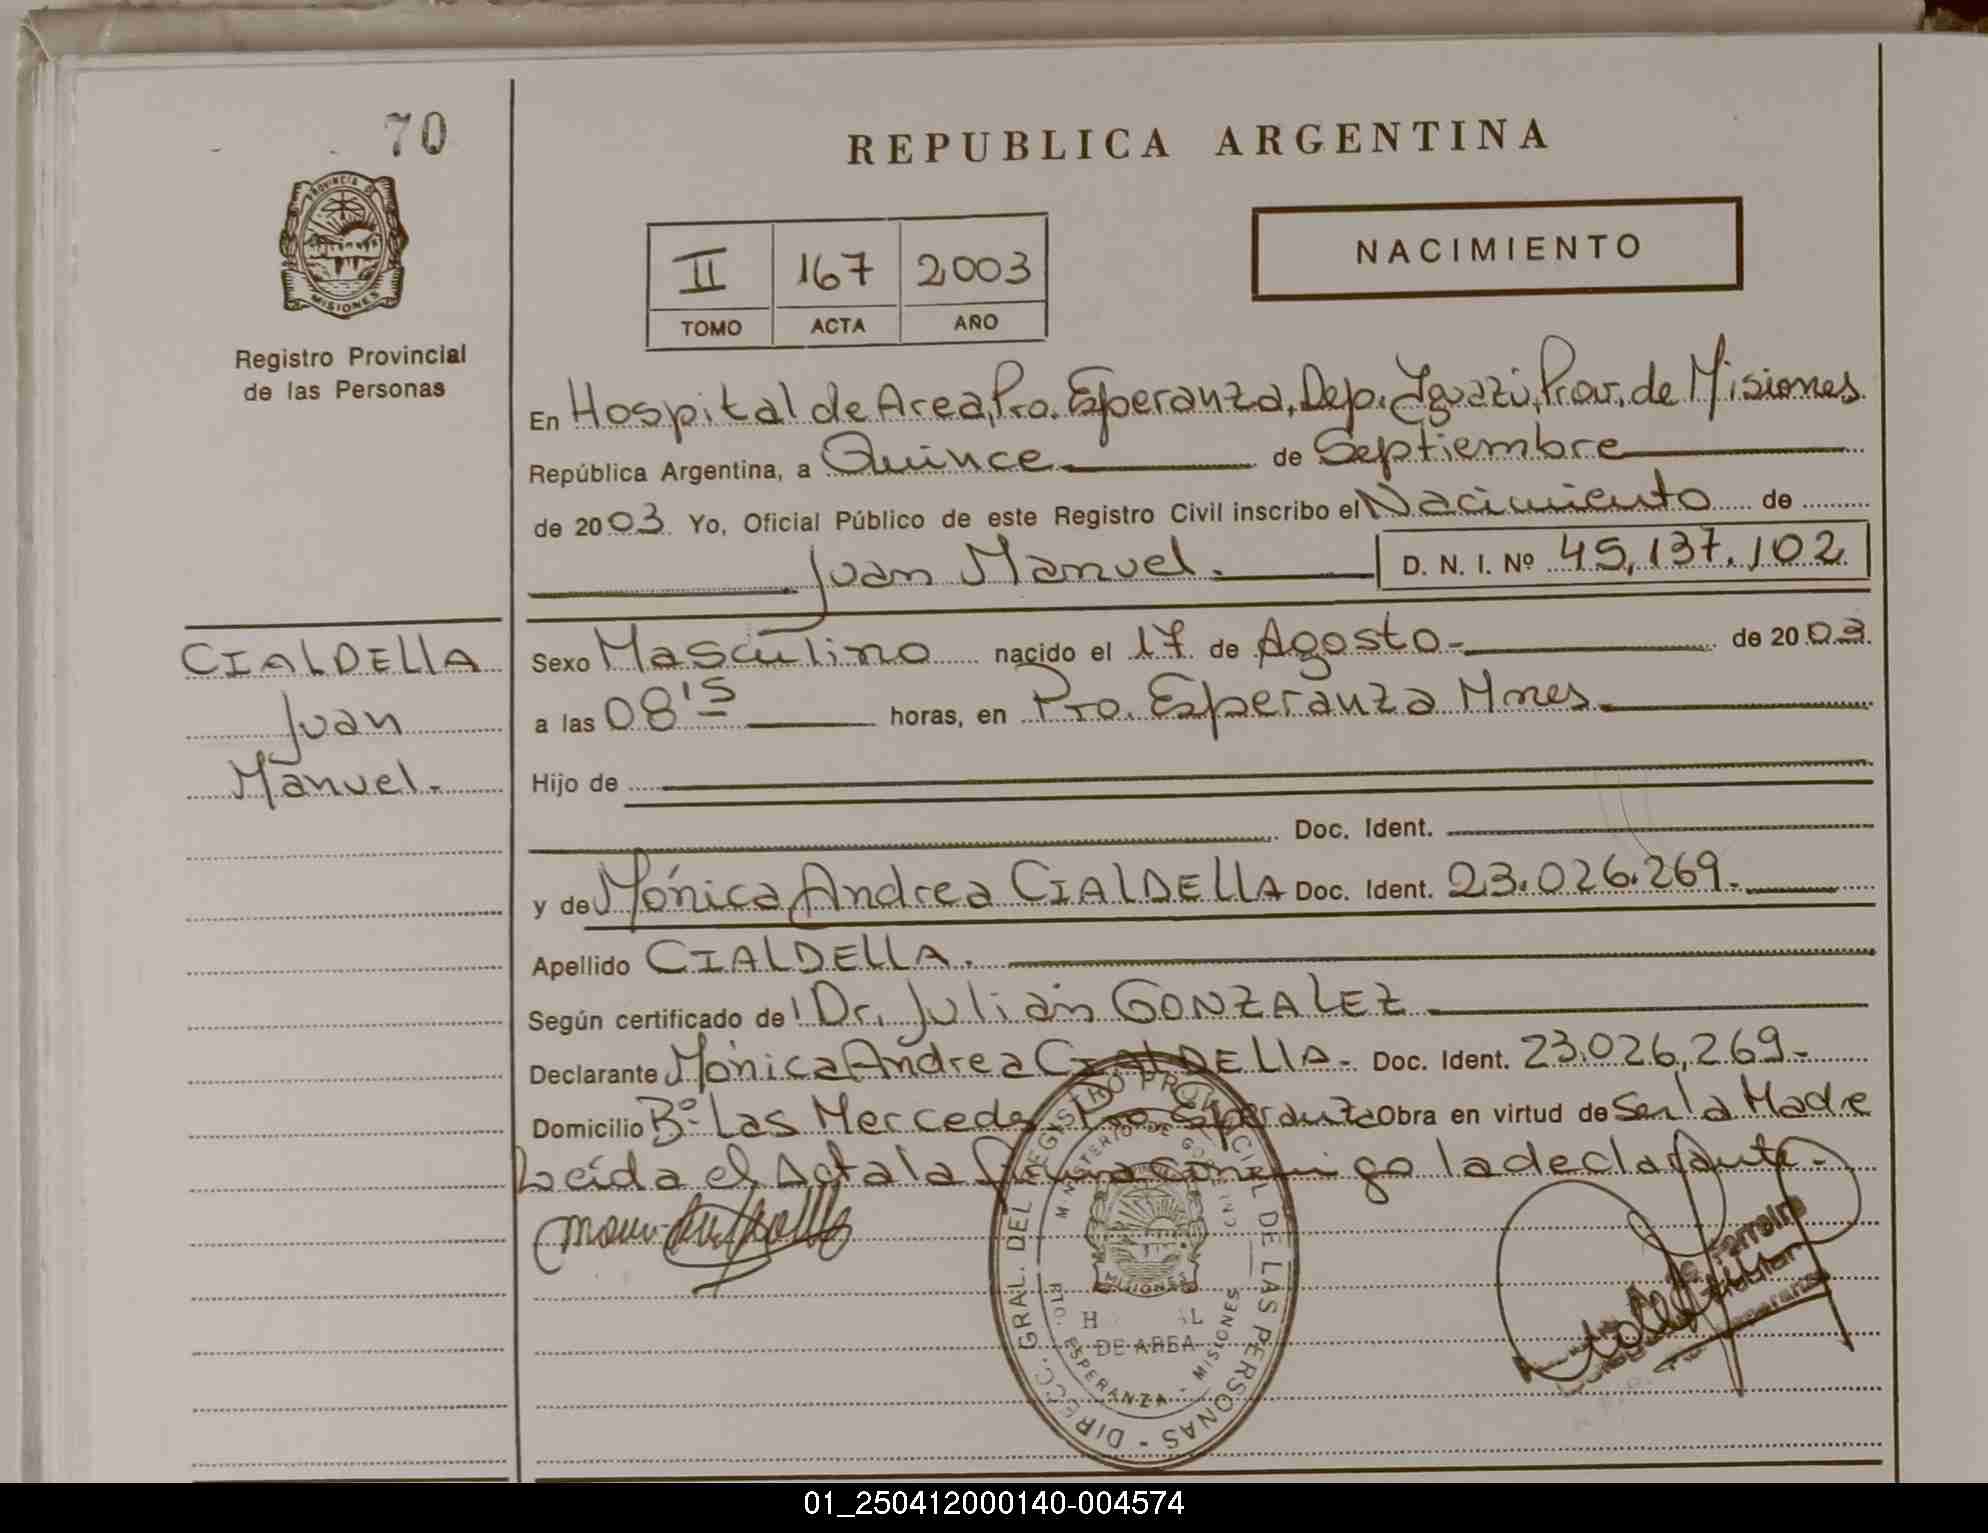 70
REPUBLICA ARGENTINA
PROVINCIA DE
MISIONES
Registro Provincial
de las Personas
II 167 2003
TOMO ACTA AÑO
NACIMIENTO
En Hospital de Area, Pto. Esperanza, Dep. Iguazú, Prov. de Misiones
República Argentina, a Quince de Septiembre
de 2003 Yo, Oficial Público de este Registro Civil inscribo el Nacimiento de
Juan Manuel. D. N. I. Nº 45.137.102
CIALDELLA
Juan
Manuel.
Sexo Masculino nacido el 17 de Agosto de 2003
a las 08'15 horas, en Pto. Esperanza Mnes.
Hijo de
Doc. Ident.
y de Mónica Andrea CIALDELLA Doc. Ident. 23.026.269.
Apellido CIALDELLA.
Según certificado de Dr. Julián GONZALEZ
Declarante Mónica Andrea CIALDELLA - Doc. Ident. 23.026.269-
Domicilio Bº Las Mercedes Pto Esperanza Obra en virtud de Ser la Madre
Leída el Acta la firma conmigo la declarante.
DIRECC. GRAL. DEL REGISTRO PROVINCIAL DE LAS PERSONAS -
MINISTERIO DE
MISIONES
DE AREA
PTO. ESPERANZA - MISIONES
Ferreira
01_250412000140-004574